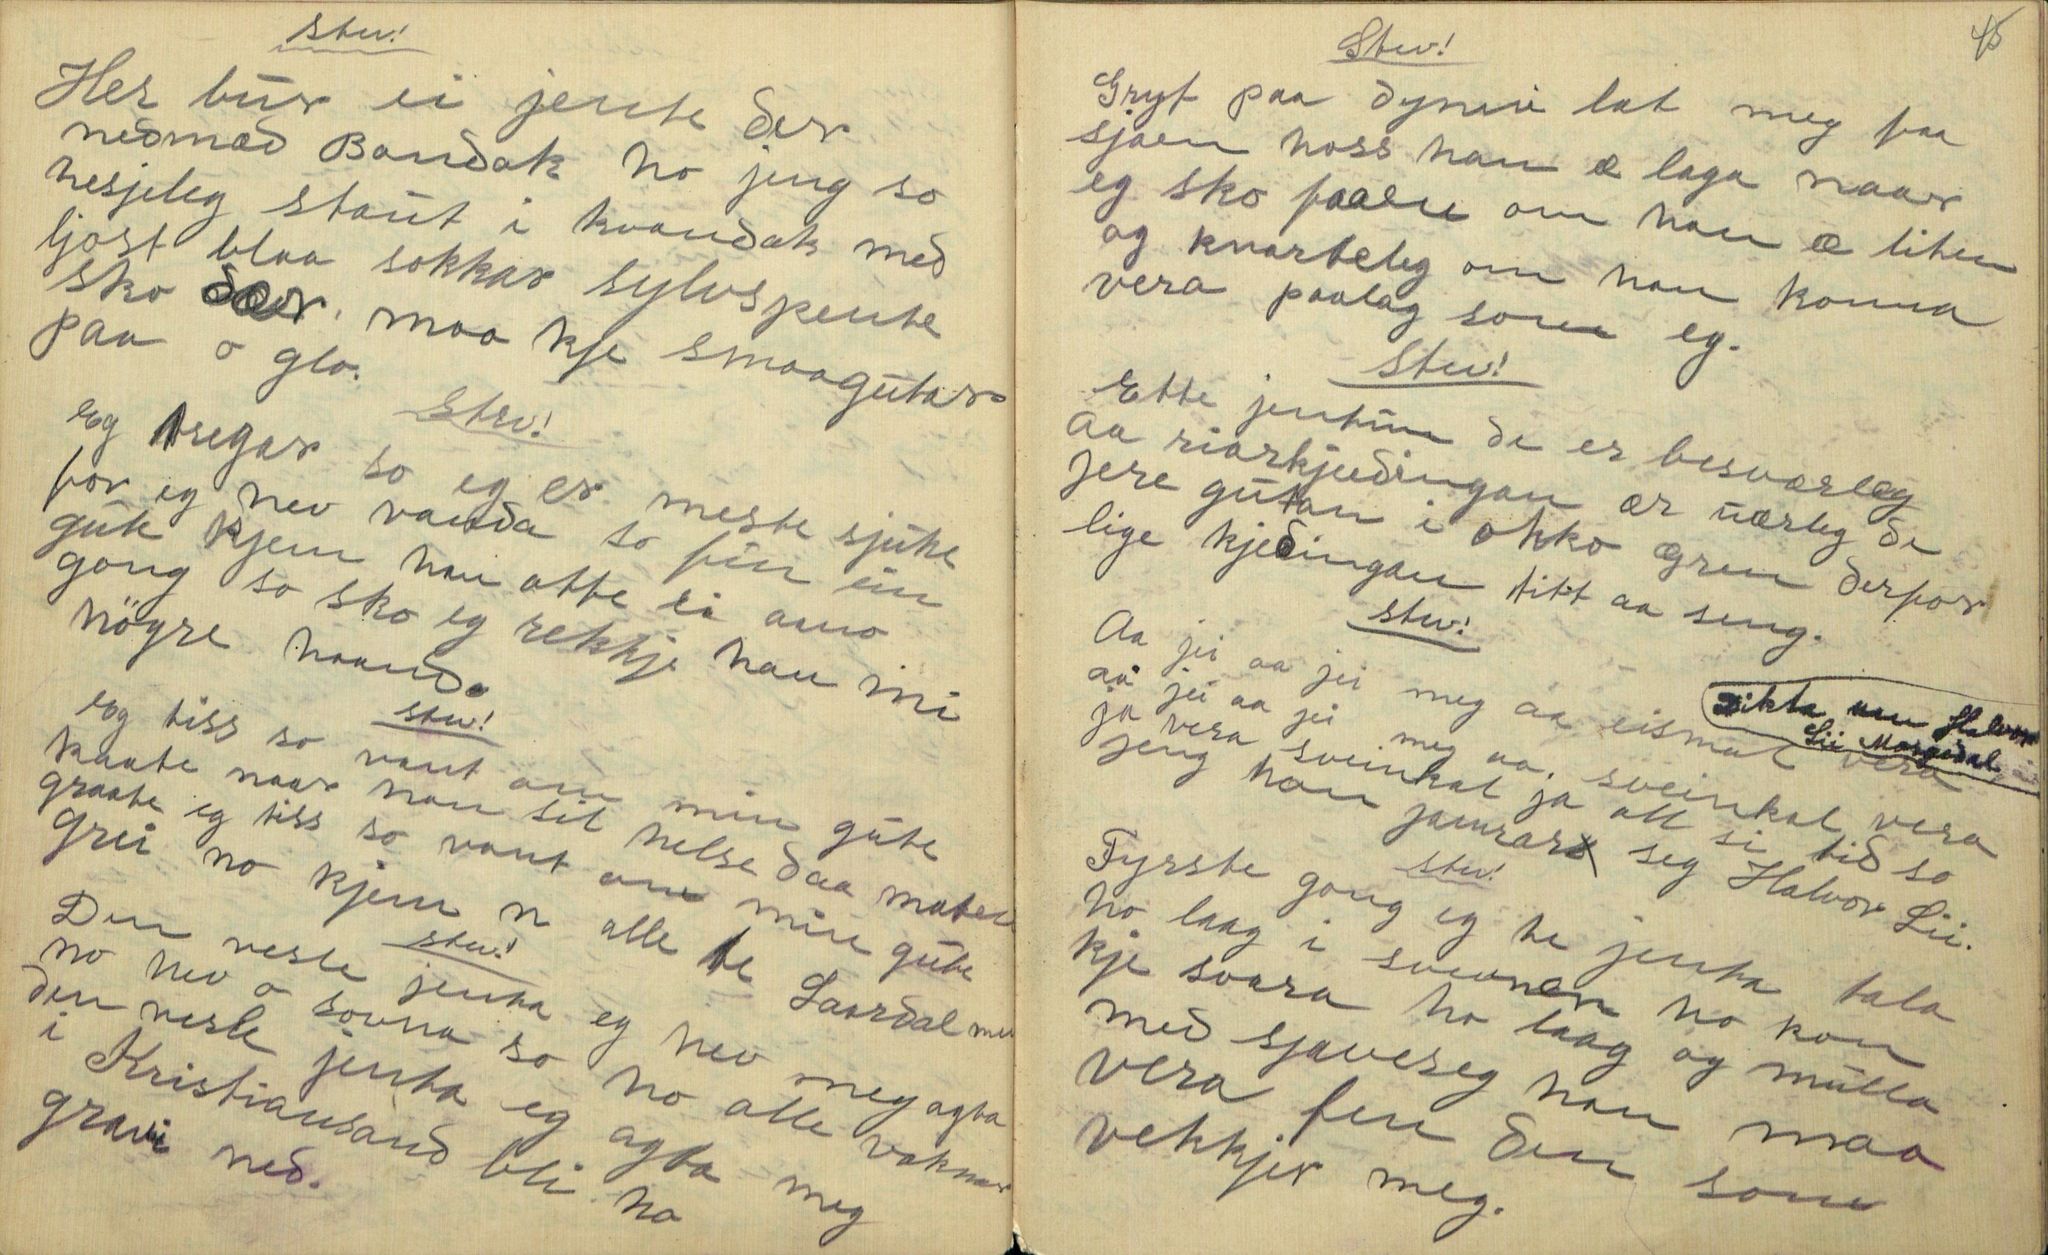 Stev!
Her bur ei jente der
nedmed Bandak ho jeng so
hesjeleg staut i kvandak med
ljost blaa sokkar sylvspente
sko der maa kje smaagutar
paa o glo.
Stev!
Eg tregar so eg er meste sjuke
for eg hev vanda so fin ein
gut kjem han atte ei aano
gong so sko eg rekkje han mi
högre haand.
stev!
Eg tiss so vant om min gute
kaate naar han sit helse daa maten
graate eg tiss so vant om min gute
grei no kjem n alle te Laardal mei
stev!
Den vesle jenta eg hev meg agta
no hev o sovna so ho alle vaknar
den vesle jenta eg agta meg
i Kristiansand bli ho
gravi ned.
45
Stev!
Gryt paa dynii lat meg faa
sjaen hoss han æ laga naar
eg sko faaen om han æ liten
og kvarteleg om han konna
vera paalag som eg.
Stev!
Ette jentun de er besværleg
Aa riarkjedingan ær uærleg de
jere gutan i okko græn derfor
lige kjedingan titt aa seng.
stev!
Aa jei aa jei meg aa eismal vera
aa jei aa jei meg aa, sveinkal vera
ja vera sveinkal ja all si tid so
jeng han jamrar seg Halvor Lii.
Dikta um Halvor
Lii Morgedal
stev!
Fyrste gong eg te jenta tala
ho laag i svevnen ho kon
kje svara ho laag og mulla
med sjaveseg han maa
vera fen den som
vekkjer meg.